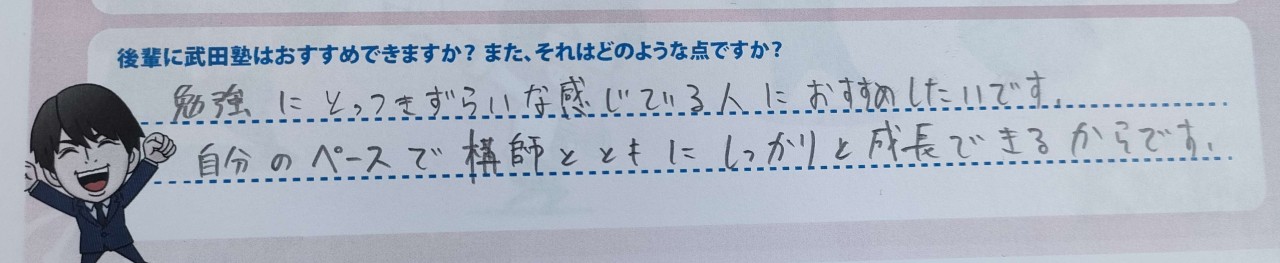 後輩に武田塾はおすすめできますか？また、それはどのような点ですか？
勉強にとっつきずらいな感じている人におすすめしたいです。
自分のペースで構師とともにしっかりと成長できるからです。